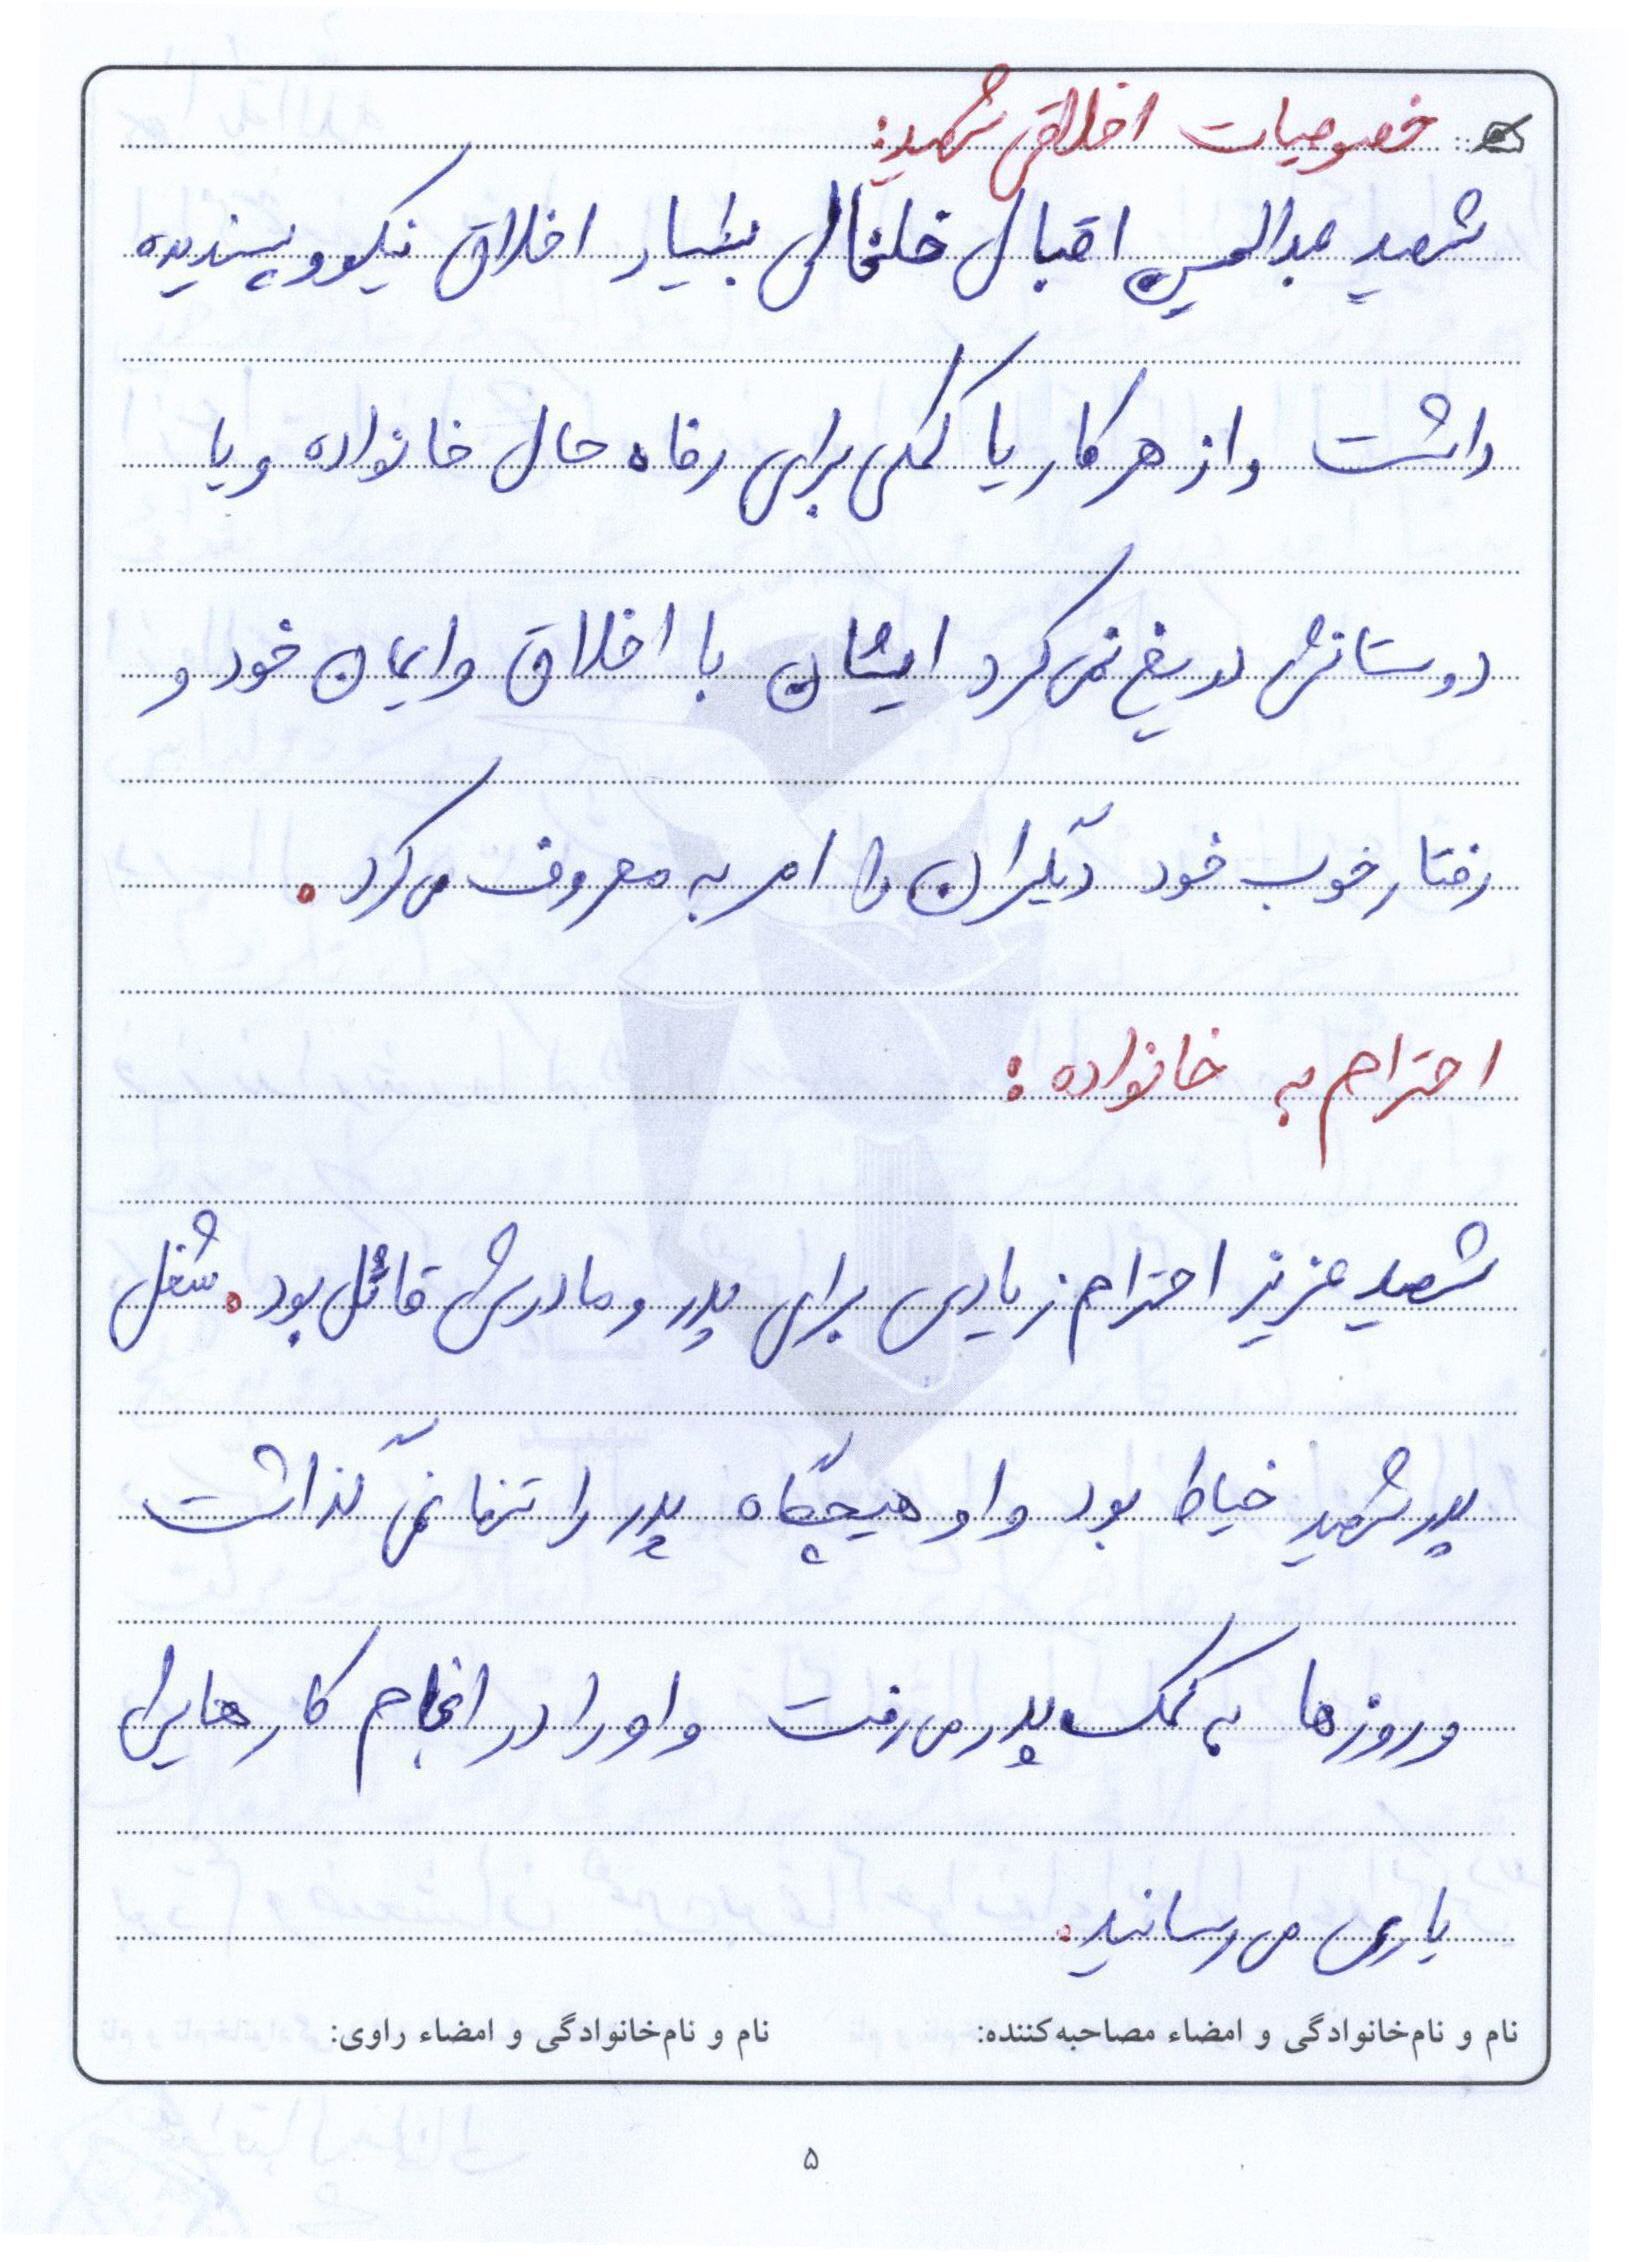 خصوصیات اخلاقی شهید:
شهید عبدالحسین اقبال خلخالی بسیار اخلاق نیکو و پسندیده
داشت و از هر کار یا کمکی برای رفاه حال خانواده و یا
دوستانش دریغ نمی کرد ایشان با اخلاق و ایمان خود و
رفتار خوب خود دیگران را امر به معروف می کرد.
احترام به خانواده:
شهید عزیز احترام زیادی برای پدر و مادرش قائل بود. شغل
پدر شهید خیاط بود و او هیچگاه پدر را تنها نمی گذاشت
و روزها به کمک پدر می رفت و او را در انجام کارهایش
یاری می رسانید.
نام و نام‌خانوادگی و امضاء مصاحبه‌کننده: نام و نام‌خانوادگی و امضاء راوی:
۵